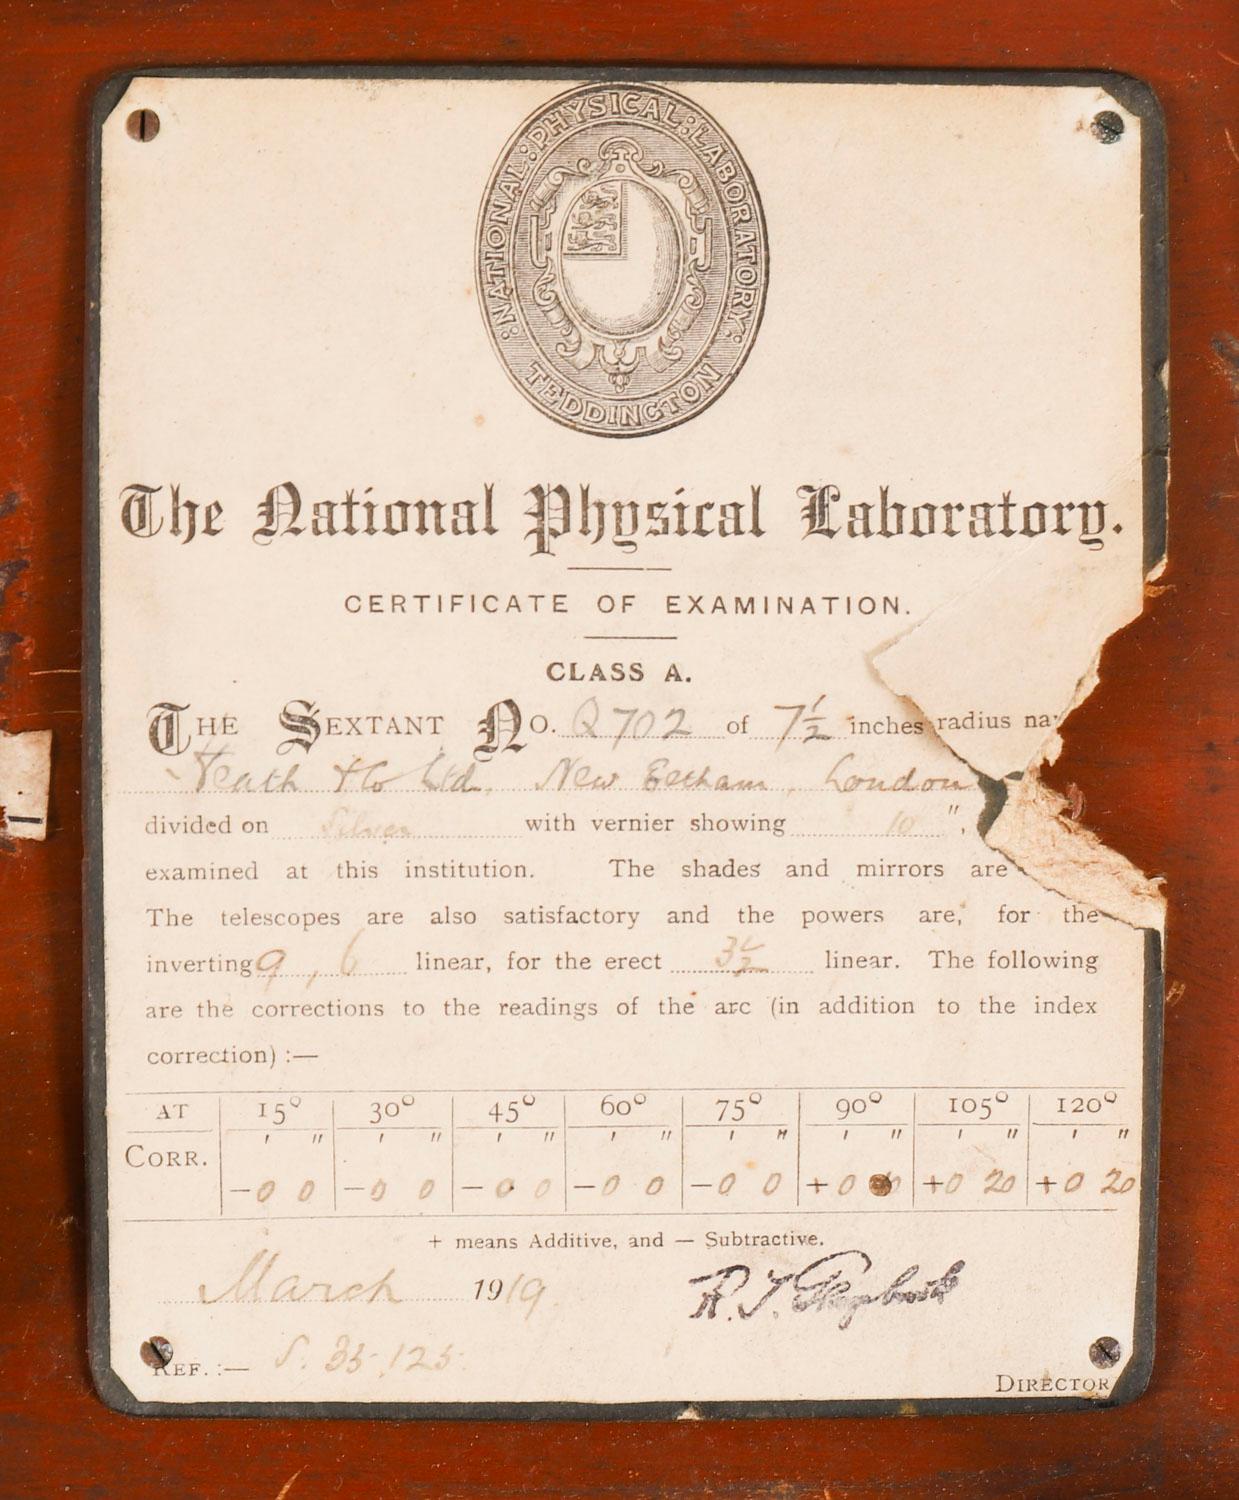 :NATIONAL:PHYSICAL:LABORATORY:
TEDDINGTON
The National Physical Laboratory.
CERTIFICATE OF EXAMINATION.
CLASS A.
THE SEXTANT No. Q702 of 7½ inches radius
Heath & Co Ltd, New Eltham, London
divided on Silver with vernier showing 10 ".
examined at this institution. The shades and mirrors are
The telescopes are also satisfactory and the powers are, for the
inverting 9, 6 linear, for the erect 3½ linear. The following
are the corrections to the readings of the arc (in addition to the index
correction) :—
AT 15° 30° 45° 60° 75° 90° 105° 120°
' " ' " ' " ' " ' " ' " ' " ' "
CORR.
—0 0 —0 0 —0 0 —0 0 —0 0 +0 +0 20 +0 20
+ means Additive, and — Subtractive.
March 1919 R. T. Glazebrook
REF. :— S. 35.125.
DIRECTOR